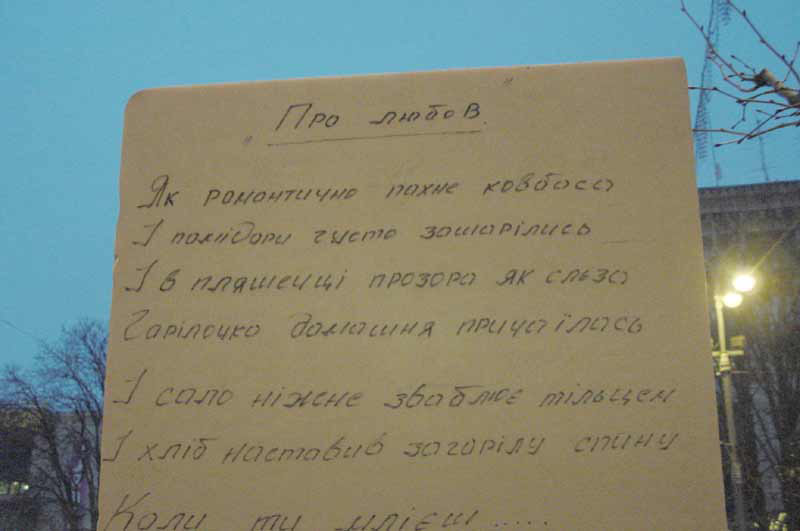 "Про любов"
Як романтично пахне ковбаса
І помідори густо зашарілись
І в пляшечці прозора як сльоза
Гарілочка домашня причаїлась
І сало ніжне зваблює тільцем
І хліб наставив загорілу спину
Коли ти млієш.....